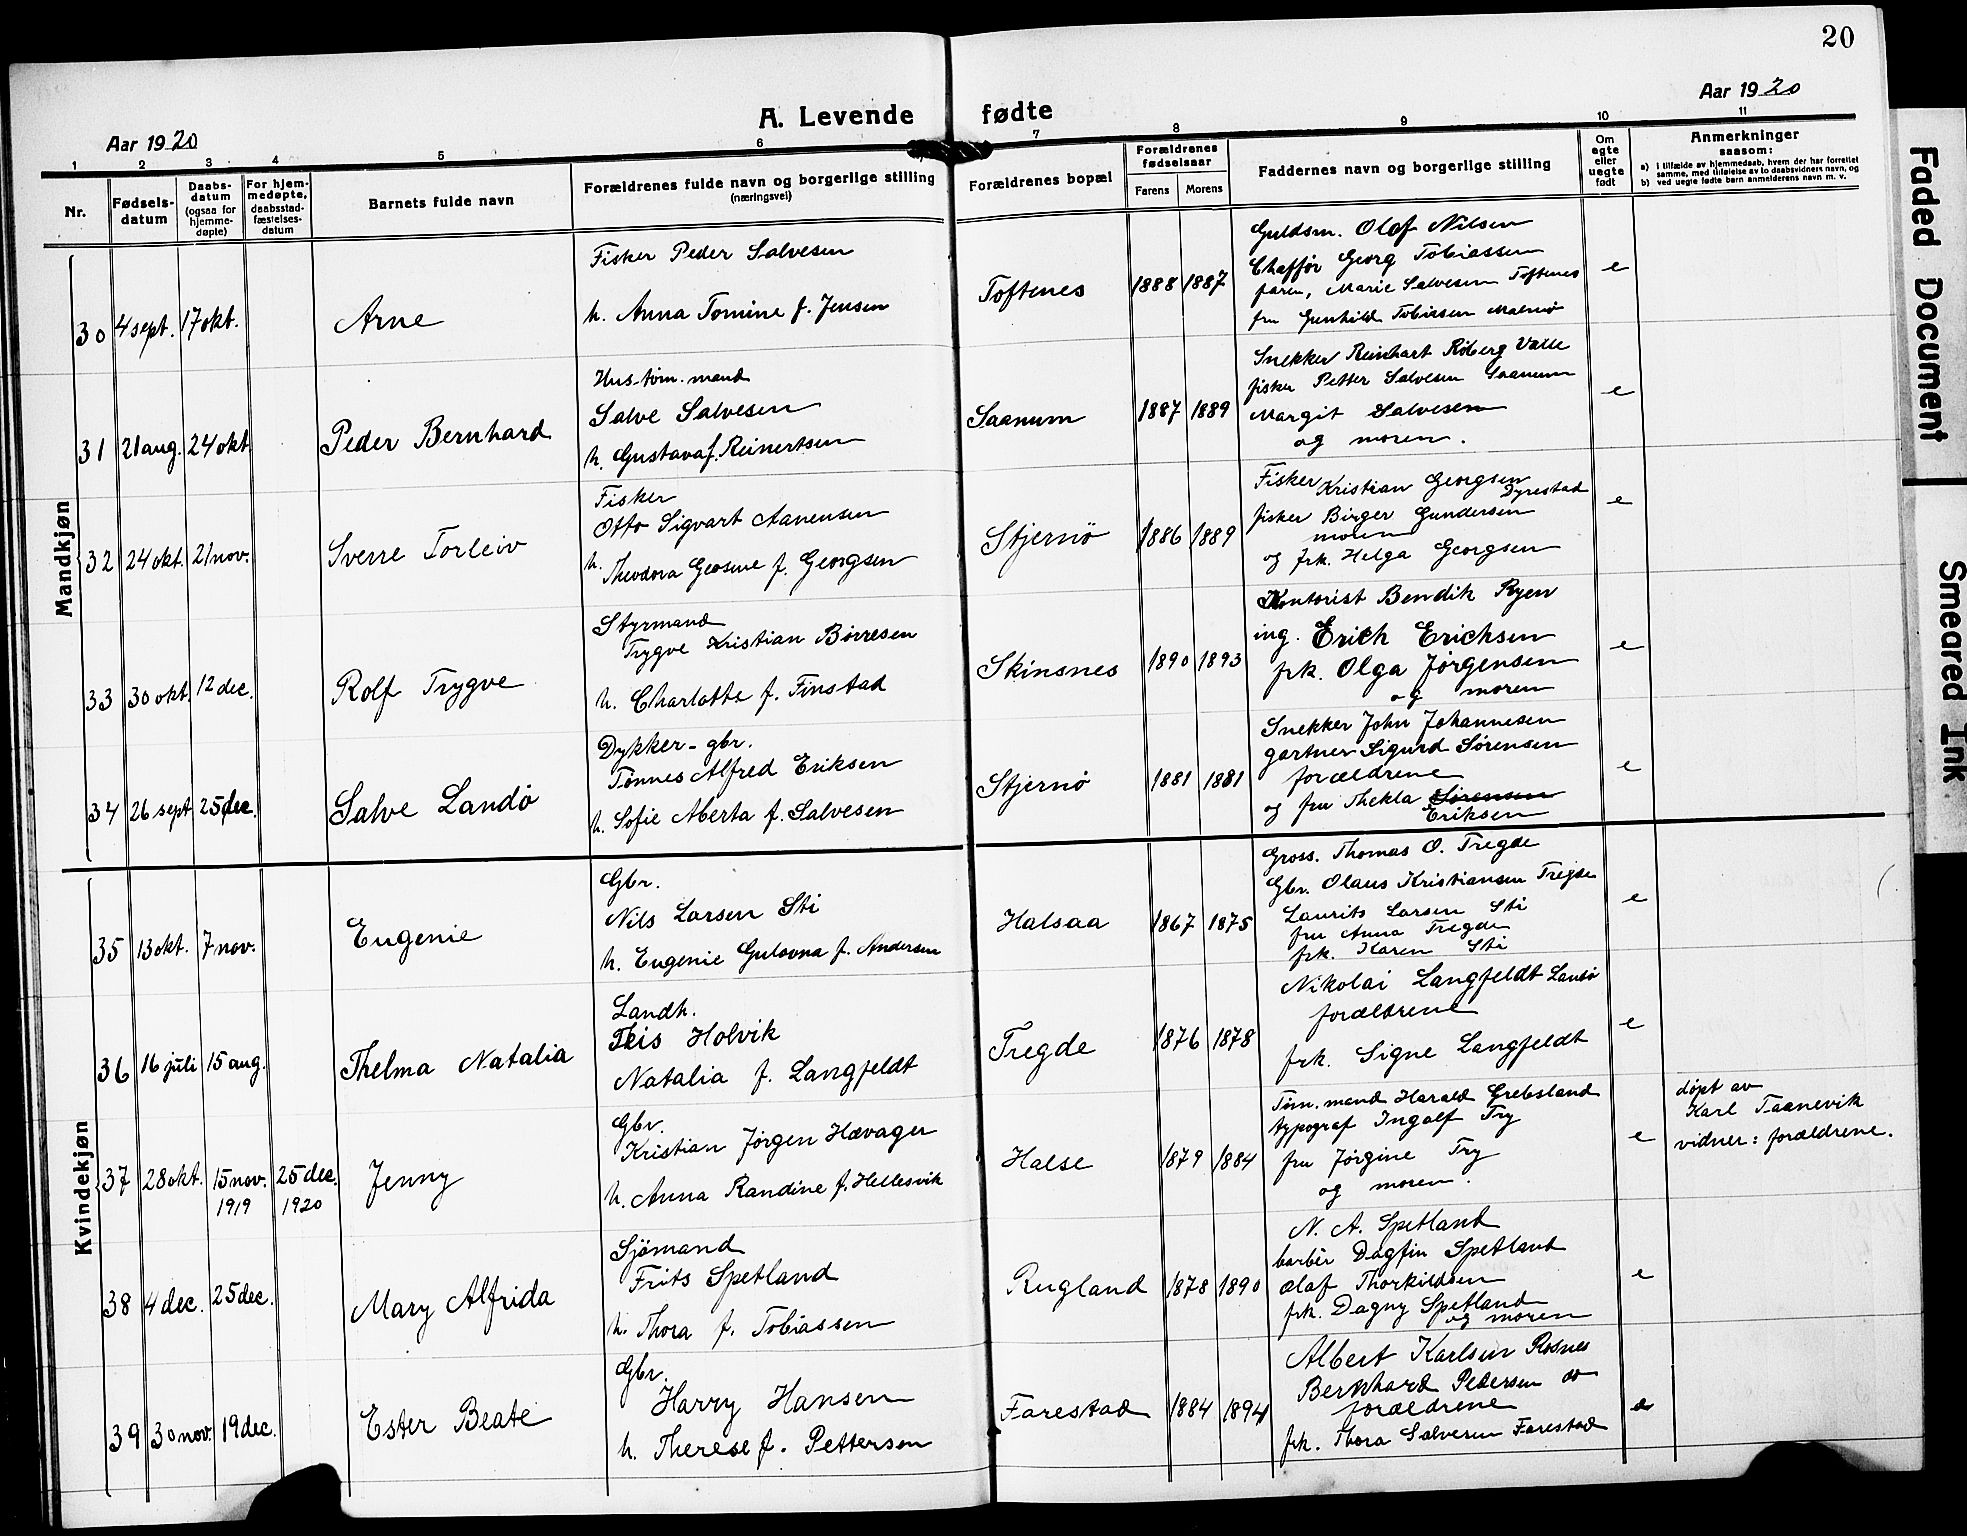 20
Aar 1920
A. Levende fødte
Aar 1920
1 2 3 4 5 6 7 8 9 10 11
Nr.
Fødsels-
datum
Daabs-
datum
(ogsaa for
hjemme-
døpte)
For hjem-
medøpte,
daabsstad-
fæstelses-
datum
Barnets fulde navn
Forældrenes fulde navn og borgerlige stilling
(næringsvei)
Forældrenes bopæl
Forældrenes
fødselsaar
Farens Morens
Faddernes navn og borgerlige stilling
Om
egte
eller
uegte
født
Anmerkninger
saasom:
a) i tilfælde av hjemmedaab, hvem der har forrettet
samme, med tilføielse av to daabsvidners navn, og
b) ved uegte fødte barn anmelderens navn m. v.
Mandkjøn
30 4 sept. 17 okt.
Arne
Fisker Peder Salvesen
h. Anna Tomine f. Jensen
Toftenes
1888 1887
Guldsm. Olaf Nilsen
Chaffør Georg Tobiassen
faren, Marie Salvesen Toftenes
fru Gunhild Tobiesen Malmø
e
31 21 aug. 24 okt
Peder Bernhard
Hus-tøm. mand
Salve Salvesen
h. Gustava f. Reinertsen
Saanum
1887 1889
Snekker Reinhart Röberg Valle
fisker Petter Salvesen Saanum
Margit Salvesen
og moren.
e
32 24 okt. 21 nov.
Sverre Torleiv
Fisker
Otto Sigvart Aanensen
h. Theodora Geosine f. Georgsen
Stjernø
1886 1889
Fisker Kristian Georgsen
Dyrestad
fisker Birger Gundersen
moren
og frk. Helga Georgsen
e
33 30 okt. 12 dec.
Rolf Trygve
Styrmand
Trygve Kristian Börresen
h. Charlotte f. Finstad
Skinsnes
1890 1893
Kontorist Bendik Ryen
ing. Erich Erichsen
frk. Olga Jørgensen
og moren
e
34 26 sept 25 dec.
Salve Landö
Dykker - gbr.
Tönnes Alfred Eriksen
h. Sofie Alberta f. Salvesen
Stjernö
1881 1881
Snekker John Johannesen
gartner Sigurd Sörensen
forældrene
og fru Thekla Sörensen
Eriksen
e
Kvindekjøn
35 13 okt. 7 nov.
Eugenie
Gbr.
Nils Larsen Sti
h. Eugenie Gulovna f. Andersen
Halsaa
1867 1875
Gross. Thomas O. Tregde
Gbr. Olaus Kristiansen Tregde
Laurits Larsen Sti
fru Anna Tregde
frk. Karen Sti
e
36 16 juli 15 aug.
Thelma Natalia
Landh.
Teis Holvik
Natalia f. Langfeldt
Tregde
1876 1878
Nikolai Langfeldt Landö
forældrene
frk. Signe Langfeldt
e
37 28 okt. 15 nov. 25 dec.
1919 1920
Jenny
Gbr.
Kristian Jørgen Hævager
h. Anna Randine f. Hellesvik
Halse
1879 1884
Tøm. mand Harald Grebsland
typograf Ingolf Try
fru Jørgine Try
og moren.
e
døpt av
Karl Taanevik
vidner: forældrene.
38 4 dec. 25 dec.
Mary Alfrida
Sjømand
Frits Spetland
h. Thora f. Tobiassen
Rugland
1878 1890
N. A. Spetland
barbér Dagfin Spetland
Olaf Thorkildsen
frk. Dagny Spetland
og moren
e
39 30 nov. 19 dec.
Ester Beate
Gbr.
Harry Hansen
h. Therese f. Pettersen
Farestad
1884 1894
Albert Karlsen Rosnes
Bernhard Pedersen do
forældrene
frk. Thora Salvesen Farestad
e
Faded Document
Smeared Ink.